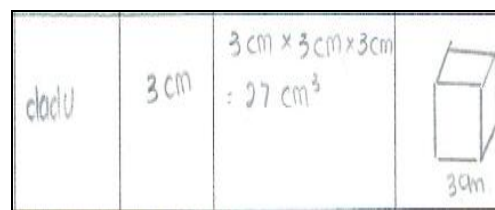 dadu
3 cm
3 cm × 3 cm × 3cm
= 27 cm³
3cm